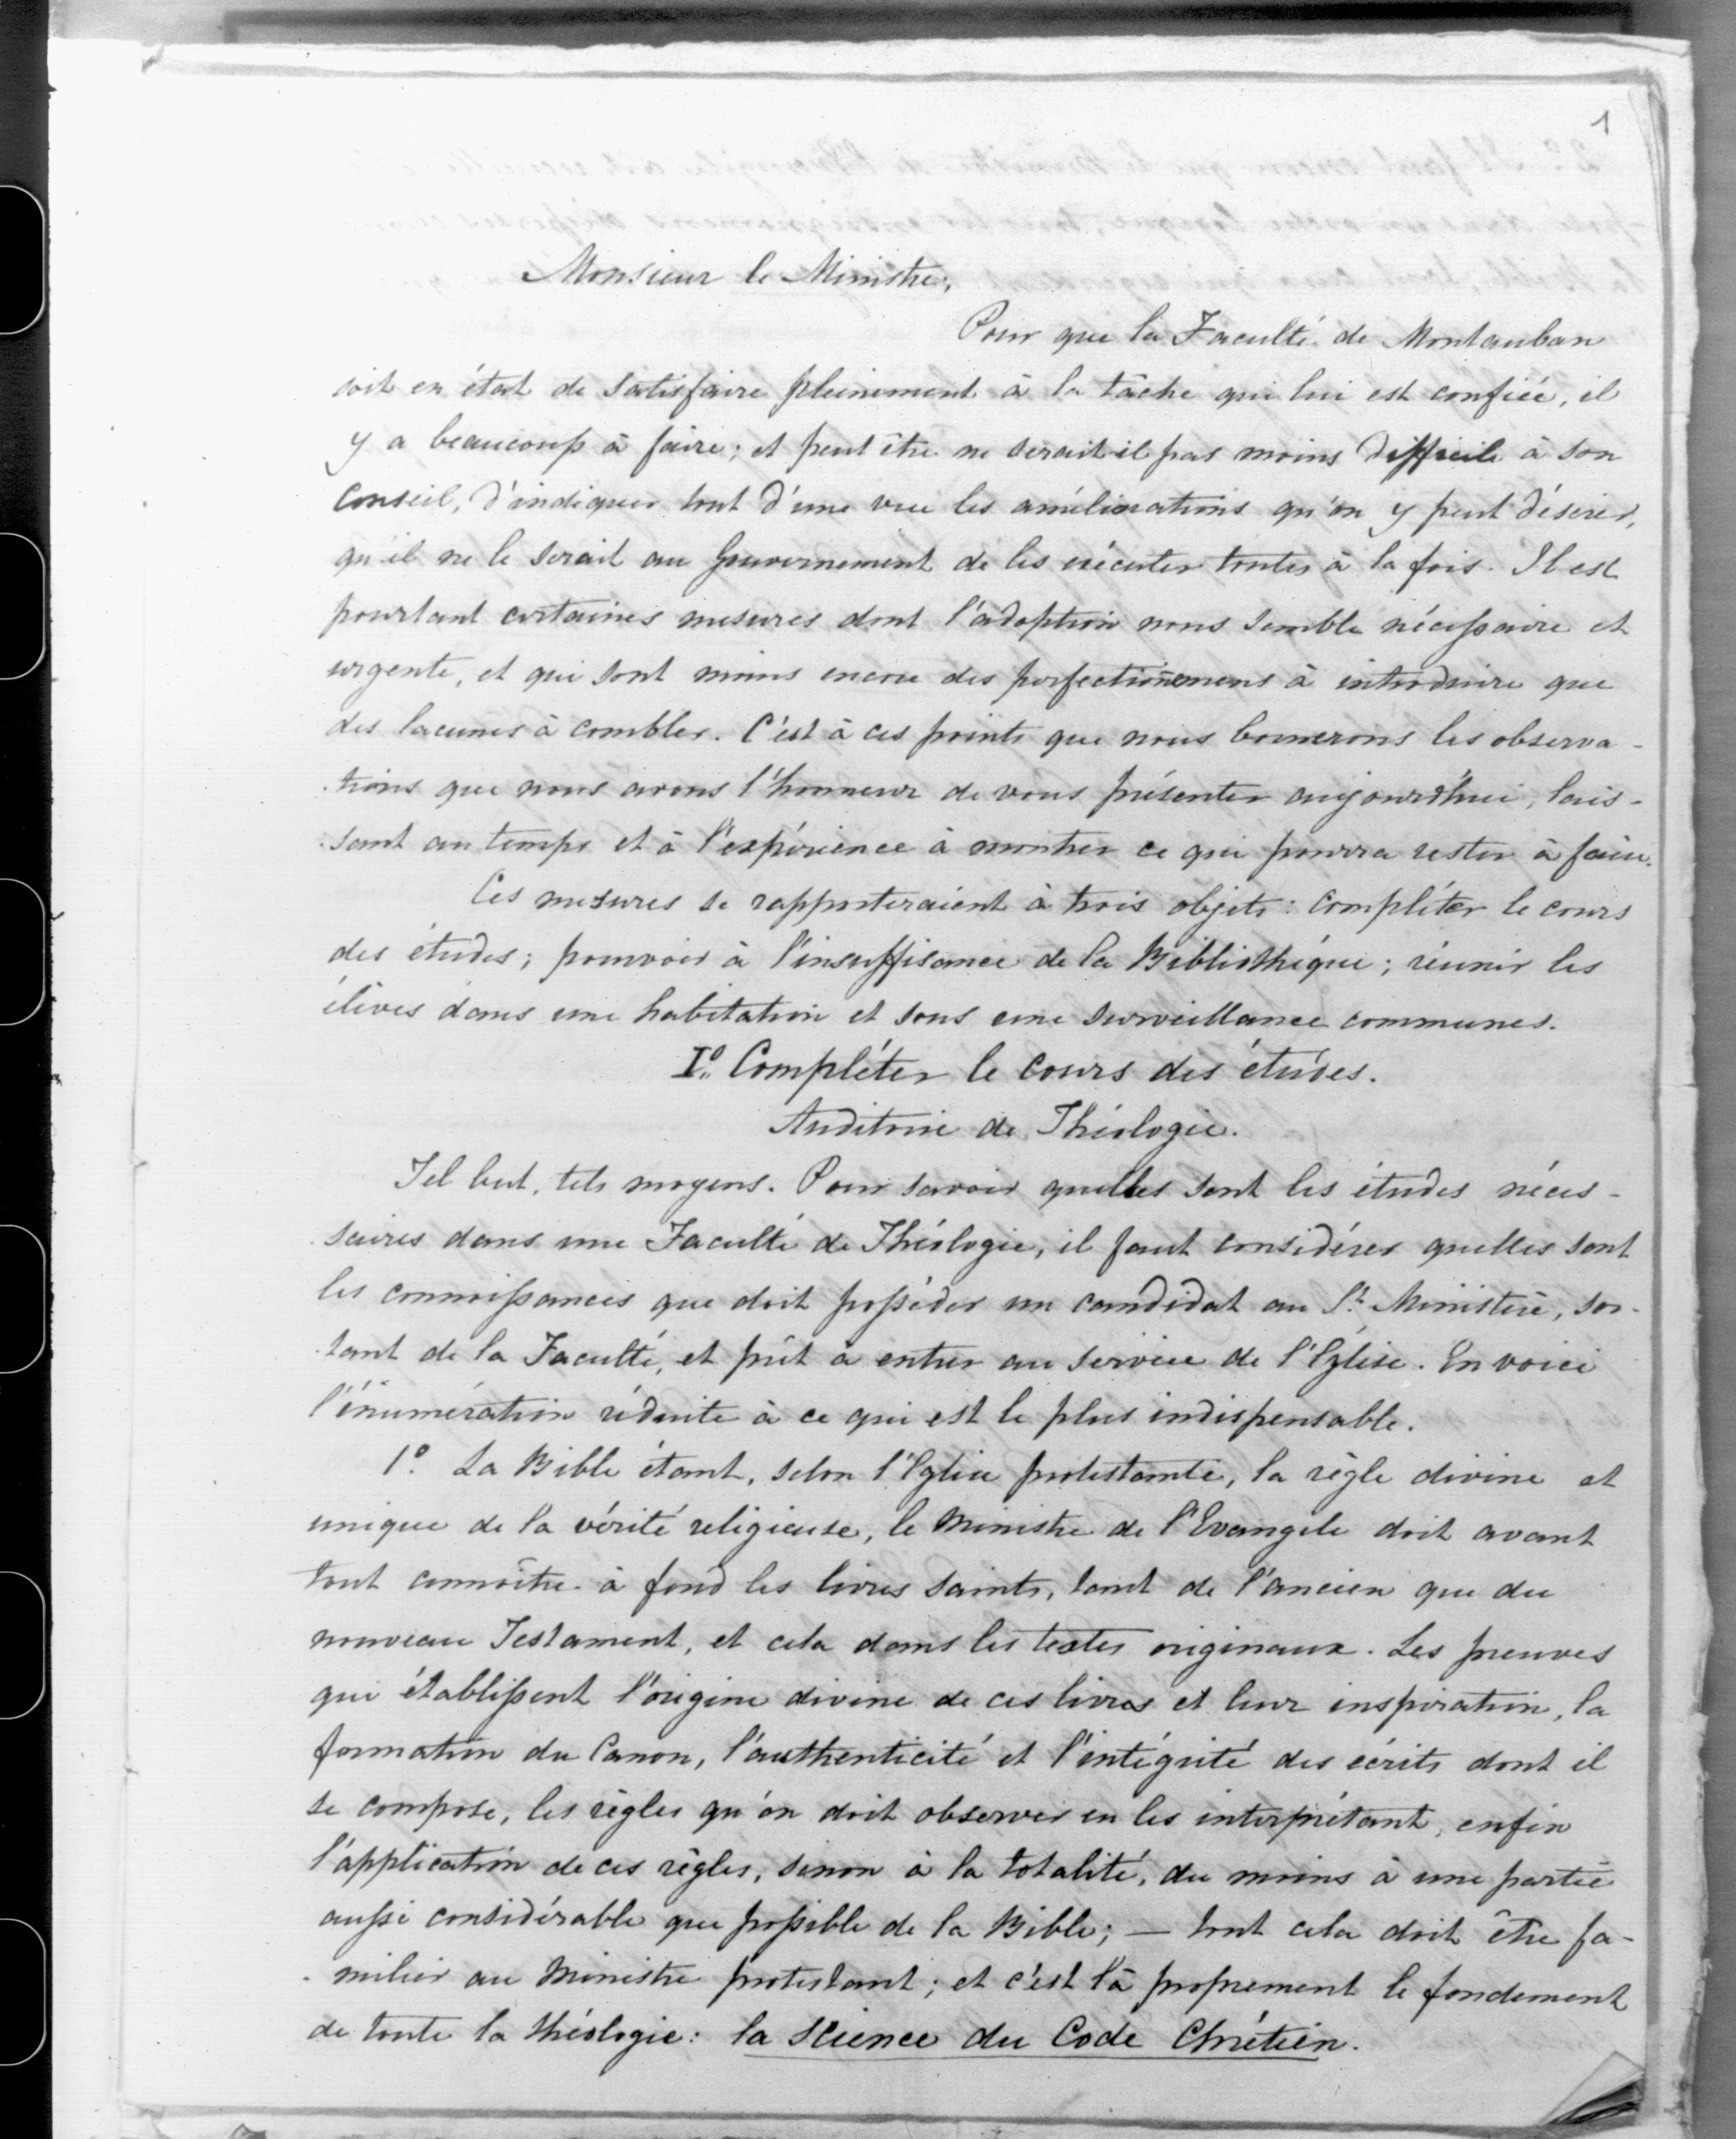 1
Monsieur le Ministre,
Pour que la Faculté de Montauban
soit en état de satisfaire pleinement à la tâche qui lui est confiée, il
y a beaucoup à faire; et peut être ne serait-il pas moins difficile à son
conseil, d'indiquer tout d'une vue les améliorations qu'on y peut désirer,
qu'il ne le serait au Gouvernement de les exécuter toutes à la fois. Il est
pourtant certaines mesures dont l'adoption nous semble nécessaire et
urgente, et qui sont moins encore des perfectionnemens à introduire que
des lacunes à combler. C'est à ces points que nous bornerons les observa-
-tions que nous avons l'honneur de vous présenter aujourd'hui, lais-
-sant au temps et à l'expérience à montrer ce qui pourra rester à faire.
Ces mesures se rapporteraient à trois objets: compléter le cours
des études; pourvoir à l'insuffisance de la Bibliothèque; réunir les
élèves dans une habitation et sous une surveillance communes.
I.º Compléter le cours des études.
Auditoire de Théologie.
Tel but, tels moyens. Pour savoir quelles sont les études néces-
-saires dans une Faculté de Théologie, il faut considérer quelles sont
les connoissances que doit posséder un candidat au St. Ministère, sor-
-tant de la Faculté, et prêt à entrer au service de l'Eglise. En voici
l'énumération réduite à ce qui est le plus indispensable.
1º. La Bible étant, selon l'Eglise protestante, la règle divine et
unique de la vérité religieuse, le Ministre de l'Evangile doit avant
tout connoître à fond les livres saints, tant de l'ancien que du
nouveau Testament, et cela dans les textes originaux. Les preuves
qui établissent l'origine divine de ces livres et leur inspiration, la
formation du Canon, l'authenticité et l'intégrité des écrits dont il
se compose, les règles qu'on doit observer en les interprétant, enfin
l'application de ces règles, sinon à la totalité, du moins à une partie
aussi considérable que possible de la Bible; — tout cela doit être fa-
-milier au Ministre protestant; et c'est là proprement le fondement
de toute la théologie: la science du Code Chrétien.